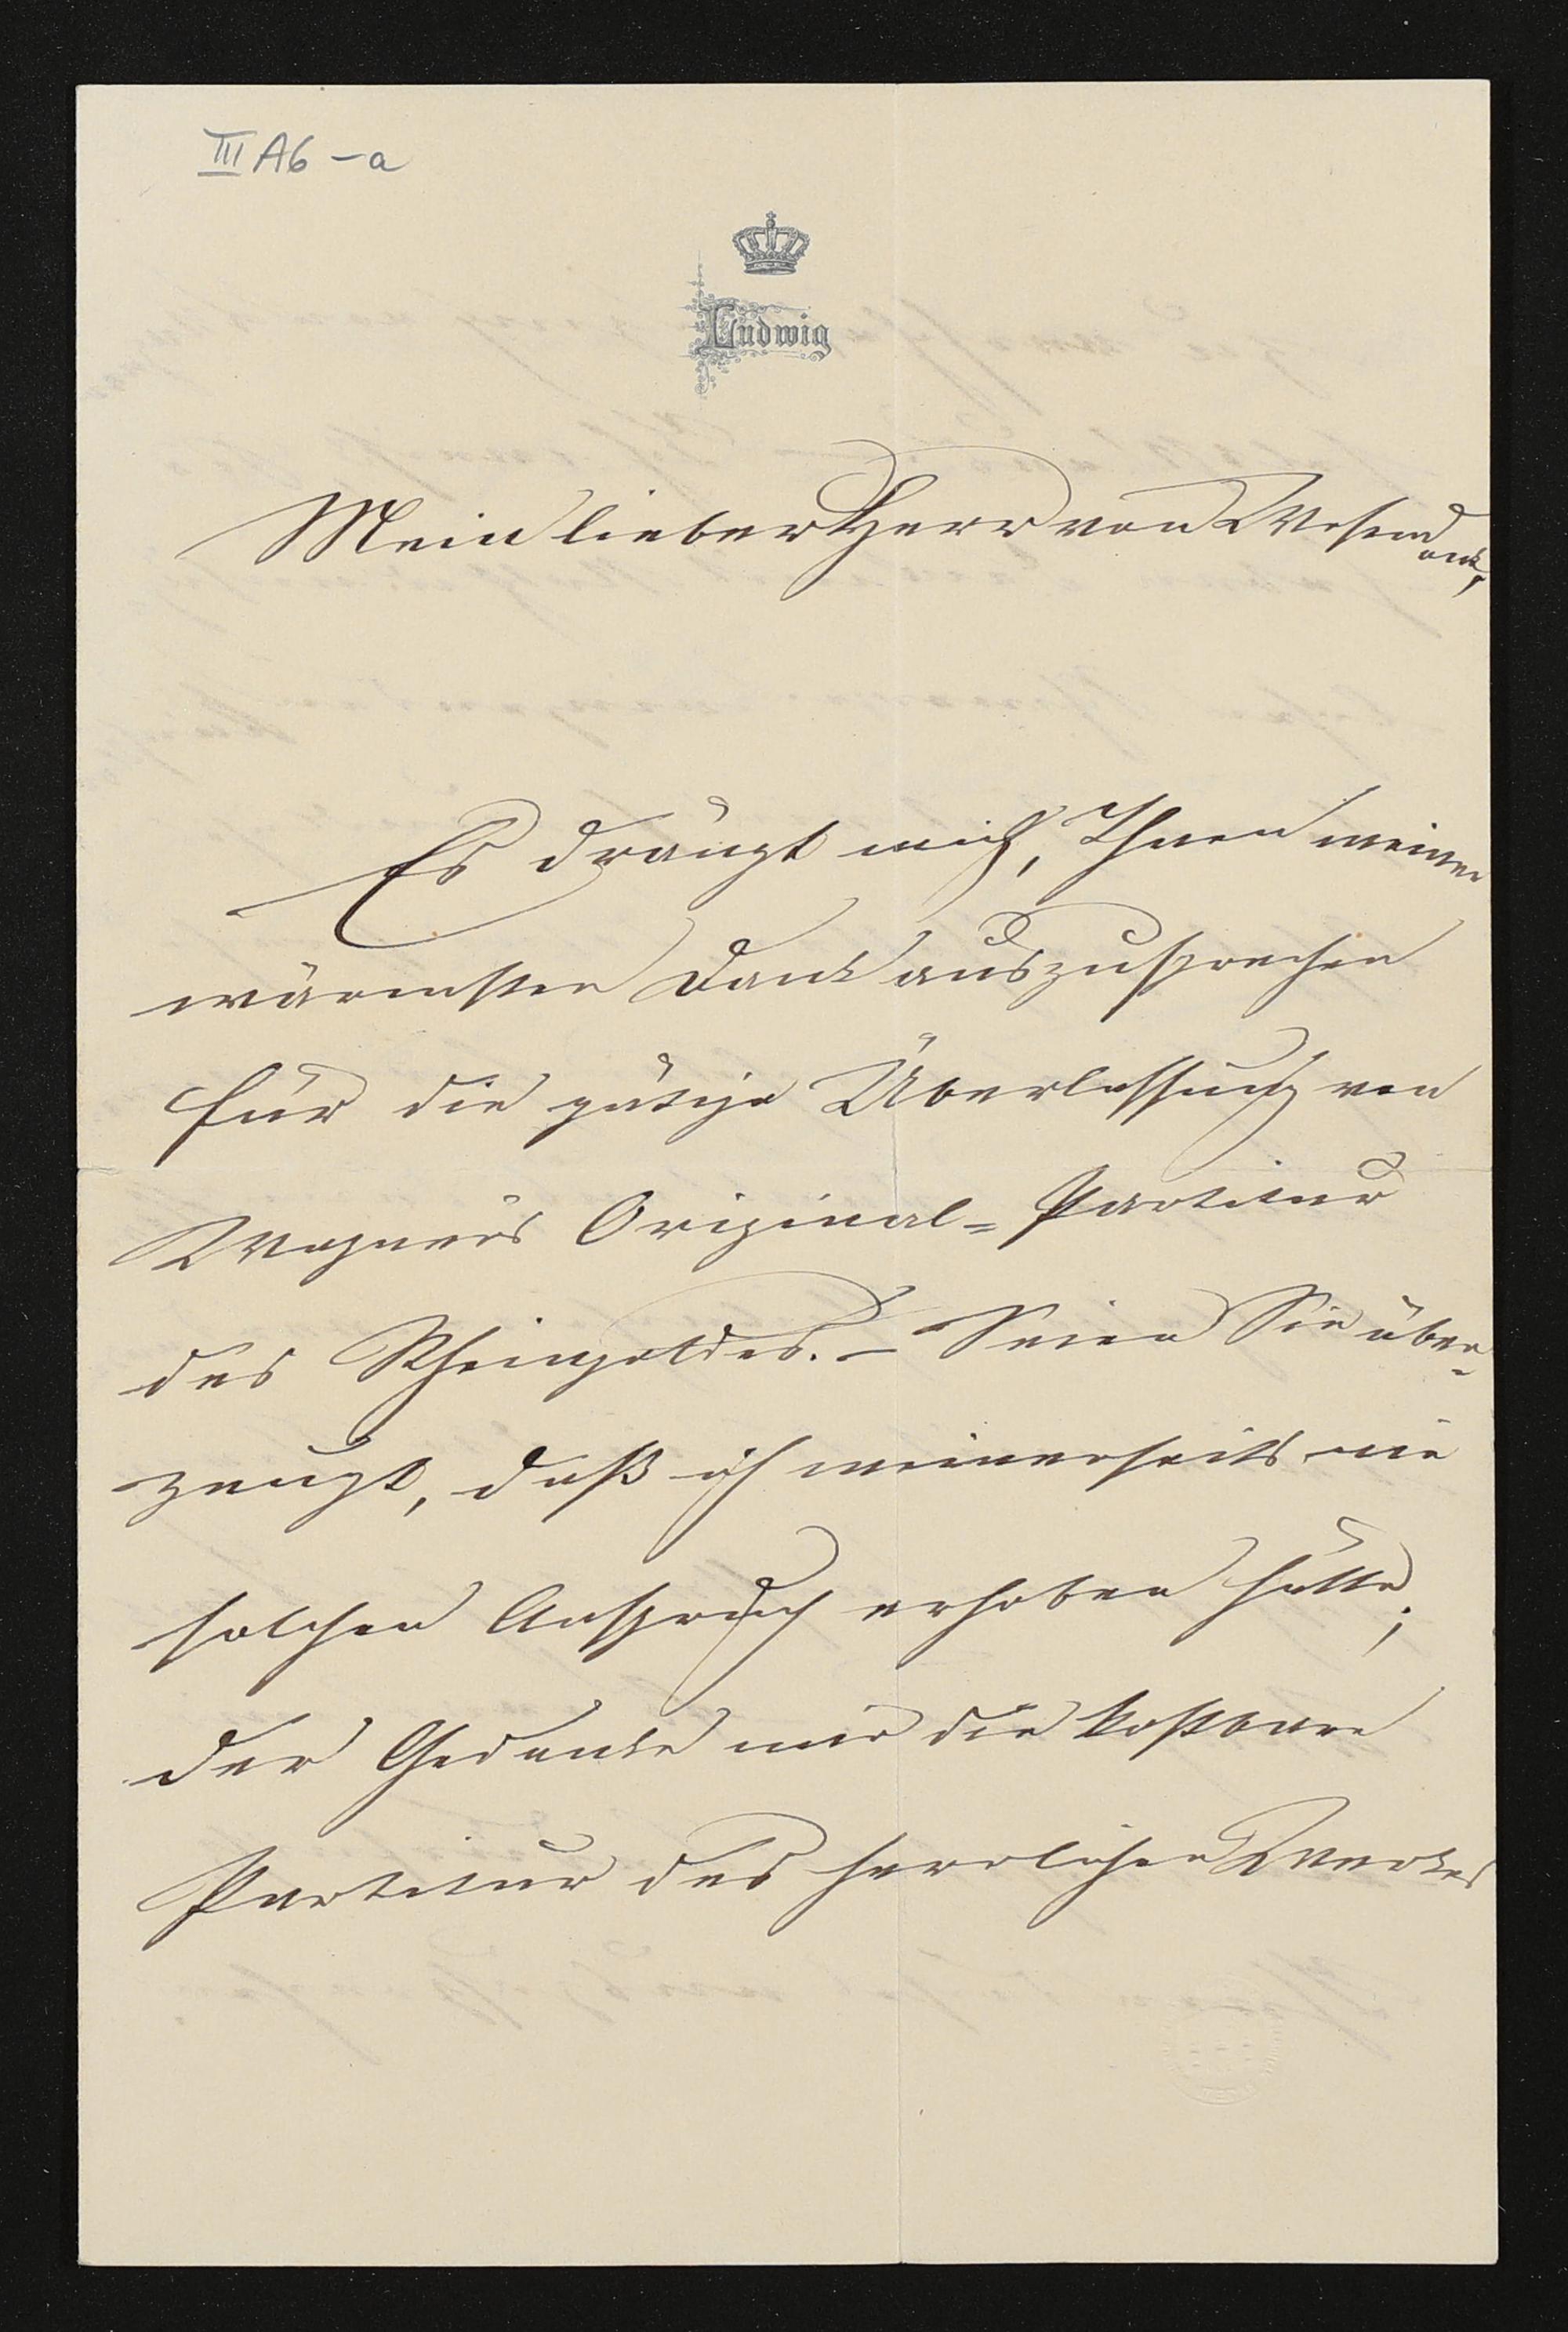 III A6 - a
Ludwig
Mein lieber Herr von Wesendonk,
Es drängt mich, Ihnen meinen
wärmsten Dank auszusprechen
für die gütige Überlassung von
Wagners Original-Partitur
des Rheingoldes. – Seien Sie über-
zeugt, daß ich meinerseits nie
solchen Anspruch erhoben hätte;
der Gedanke mir die kostbare
Partitur des herrlichen Werkes